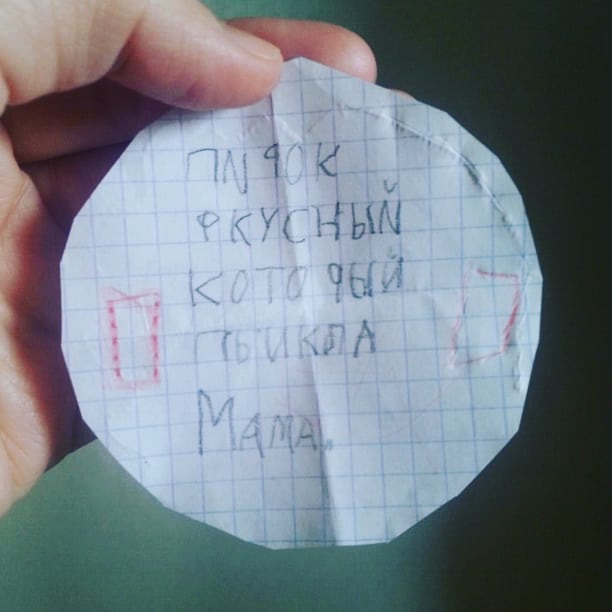 ПИРОК
ФКУСНЫЙ
КОТОРЫЙ
ПЬИКЛА
Мама.